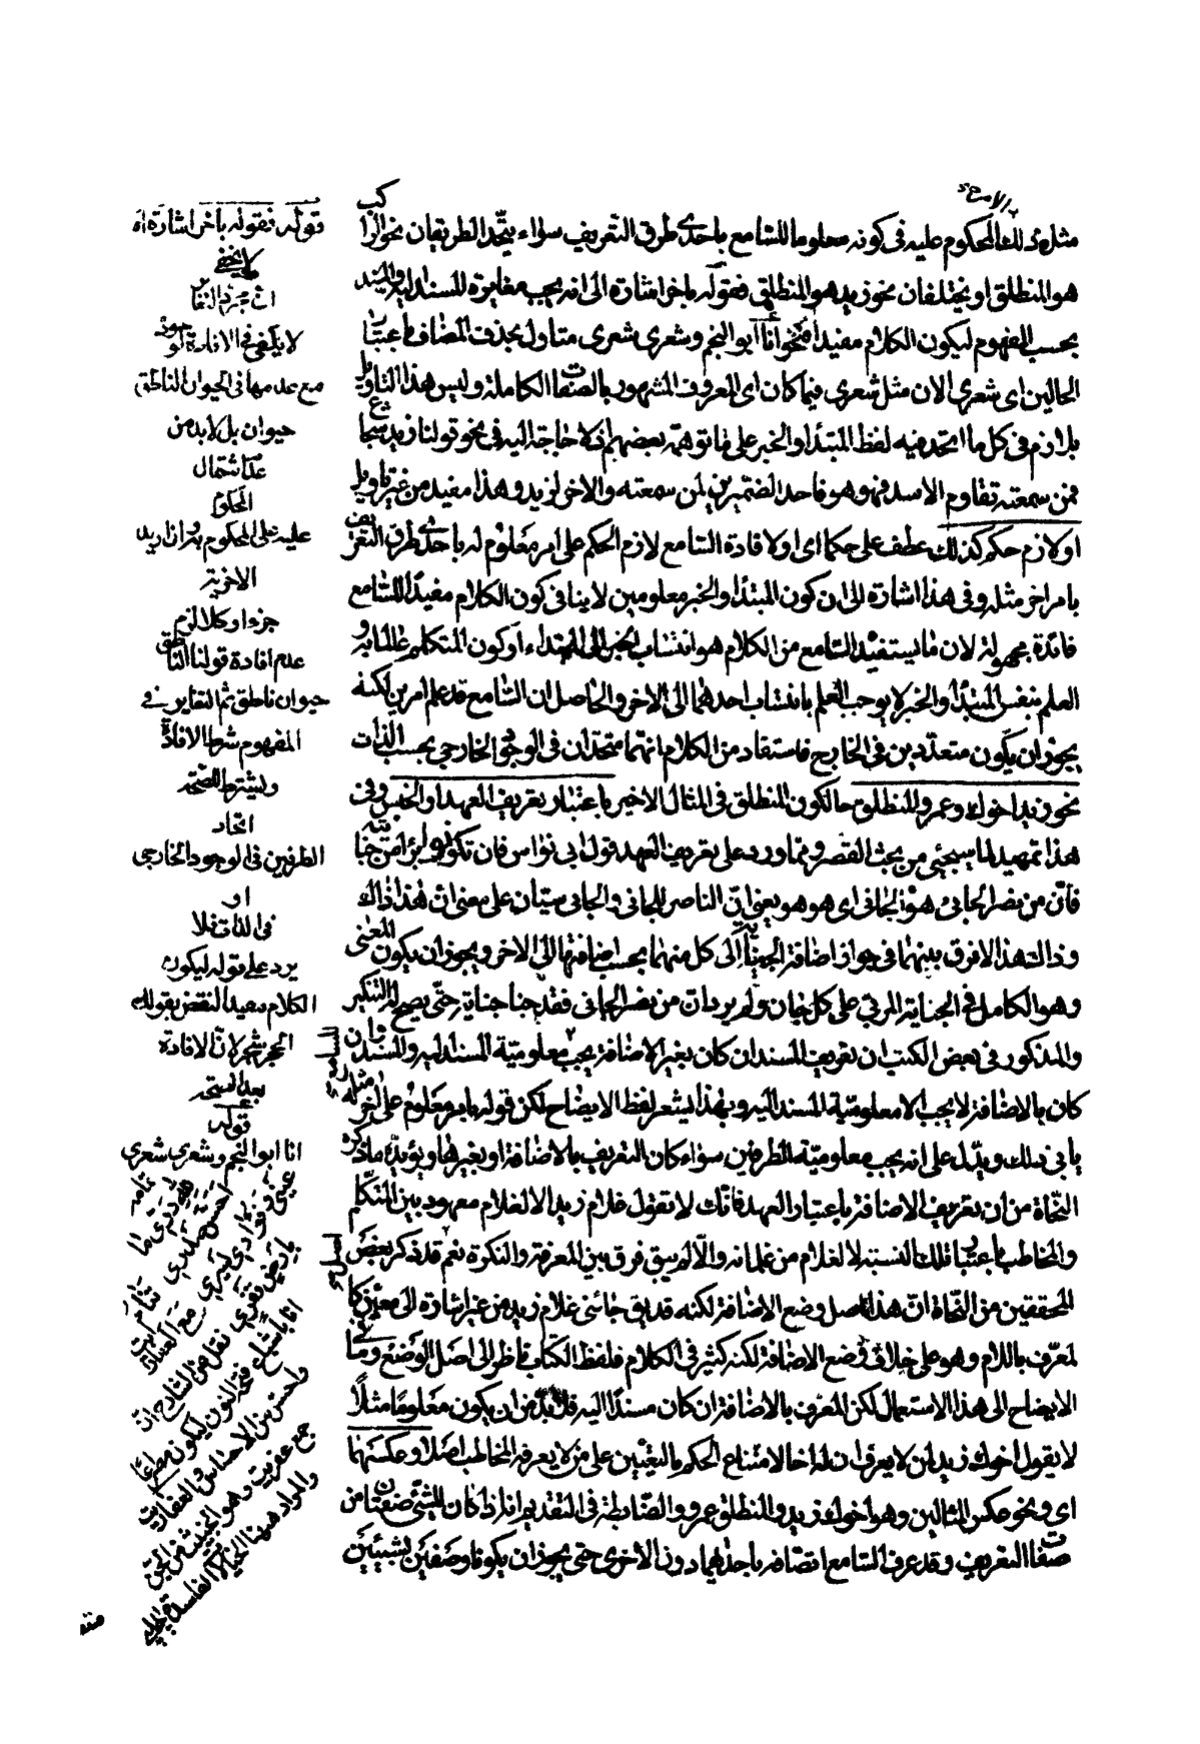 مثله اى ذلك المحكوم عليه فى كونه معلوما للسامع باحدى طرق التعريف سواء يتحد الطريقان نحو الراكب
هو المنطلق او يختلفان نحو زيد هو المنطلق فقوله باخر اشارة الى انه يجب مغايرة المسند اليه والمسند
بحسب المفهوم ليكون الكلام مفيدا فنحو انا ابو النجم وشعرى شعرى متاول بحذف المضاف باعتبار
الحالين اى شعرى الان مثل شعرى فيما كان اى المعروف المشهور بالصفات الكاملة وليس هذا التاويل
بلازم فى كل ما اتحد فيه لفظ المبتدا والخبر على ما توهمه بعضهم اذ لا حاجة اليه فى نحو قولنا زيد شجاع
فمن سمعته تقاوم الاسد فهو هو فاحد الضميرين لمن سمعته والاخر لزيد وهذا مفيد من غير تاويل
او لازم حكم كذلك عطف على حكما اى او لافادة السامع لازم الحكم على امر معلوم له باحدى طرق التعريف
بامر اخر مثله وفى هذا اشارة الى ان كون المبتدا والخبر معلومين لا ينافى كون الكلام مفيدا للسامع
فائدة مجهولة لان ما يستفيد السامع من الكلام هو انتساب الخبر الى المبتداء او كون المتكلم عالما به و
العلم بنفس المبتدا والخبر لا يوجب العلم بانتساب احدهما الى الاخر والحاصل ان السامع قد علم امرين لكنه
يجوز ان يكون متعددين فى الخارج فاستفاد من الكلام انهما متحدان فى الوجود الخارجى بحسب الذات
نحو زيد اخوك وعمرو المنطلق حالكون المنطلق فى المثال الاخير باعتبار تعريف العهد او الجنس وفى
هذا تمهيد لما سيجئى من بحث القصر ومما ورد على تعريف العهد قول ابى نواس فان تكونوا براء من جنايته
فان من نصر الجانى هو الجانى اى هو هو يعنى ان الناصر للجانى والجانى سيان على معنى ان هذا ذاك
وذاك هذا لا فرق بينهما فى جواز اضافة الجناية الى كل منهما بحسب اضافتها الى الاخر ويجوز ان يكون المعنى
وهو الكامل فى الجناية المربى على كل جان ولم يرد ان من نصر الجانى فقد جنا جناية حتى يصح له التنكير
والمذكور فى بعض الكتب ان تعريف المسند ان كان بغير الاضافة يجب معلومية المسند اليه والمسند وان
كان بالاضافة لا يجب الا معلومية المسند اليه وبهذا يشعر لفظ الايضاح لكن قوله بامر معلوم على اخر مثله
يابى ذلك ويدل على انه يجب معلومية الطرفين سواء كان التعريف بالاضافة او بغيرها ويؤيده ما ذكره
النحاة من ان تعريف الاضافة باعتبار العهد فانك لا تقول غلام زيد الا لغلام معهود بين المتكلم
والمخاطب باعتبار تلك النسبة لا لغلام من غلمانه والا لم يبق فرق بين المعرفة والنكرة نعم قد ذكر بعض
المحققين من النحاة ان هذا اصل وضع الاضافة لكنه قد يق جائنى غلام زيد من غير اشارة الى معين كا
لمعرف باللام وهو على خلاف وضع الاضافة لكنه كثير فى الكلام فلفظ الكتاب ناظر الى اصل الوضع وما فى
الايضاح الى هذا الاستعمال لكن المعرف بالاضافة ان كان مسندا اليه فلا بد من ان يكون معلوما مثلا
لا يقول اخوك زيد لمن لا يعرف ان له اخا لامتناع الحكم بالتعيين على من لا يعرفه المخاطب اصلا وعكسهما
اى ونحو عكس المثالين وهو اخوك زيد والمنطلق عمرو والضابطة فى التقديم انه اذا كان للشئ صفتان من
صفات التعريف وقد عرف السامع اتصافه باحدهما دون الاخرى حتى يجوز ان يكونا وصفين لشيئين
قوله فقوله باخر اشارة اه
لا يخفى
ان مجرد التغاير
لا يكفى فى الافادة لوجوده
مع عدمها فى الحيوان الناطق
حيوان بل لابد من
عدم اشتمال
المحكوم
عليه على المحكوم به
جزءا او كلا لزم
عدم افادة قولنا الناطق
حيوان ناطق ثم التغاير فى
المفهوم شرط الافادة
ويشترط للصحة
اتحاد
الطرفين فى الوجود الخارجى
او
فى الذات فلا
يرد على قوله ليكون
الكلام مفيدا النقض بقوله
الحجر شجر لان الافادة
بعد الصحة
قوله
انا ابو النجم وشعرى شعرى
منه